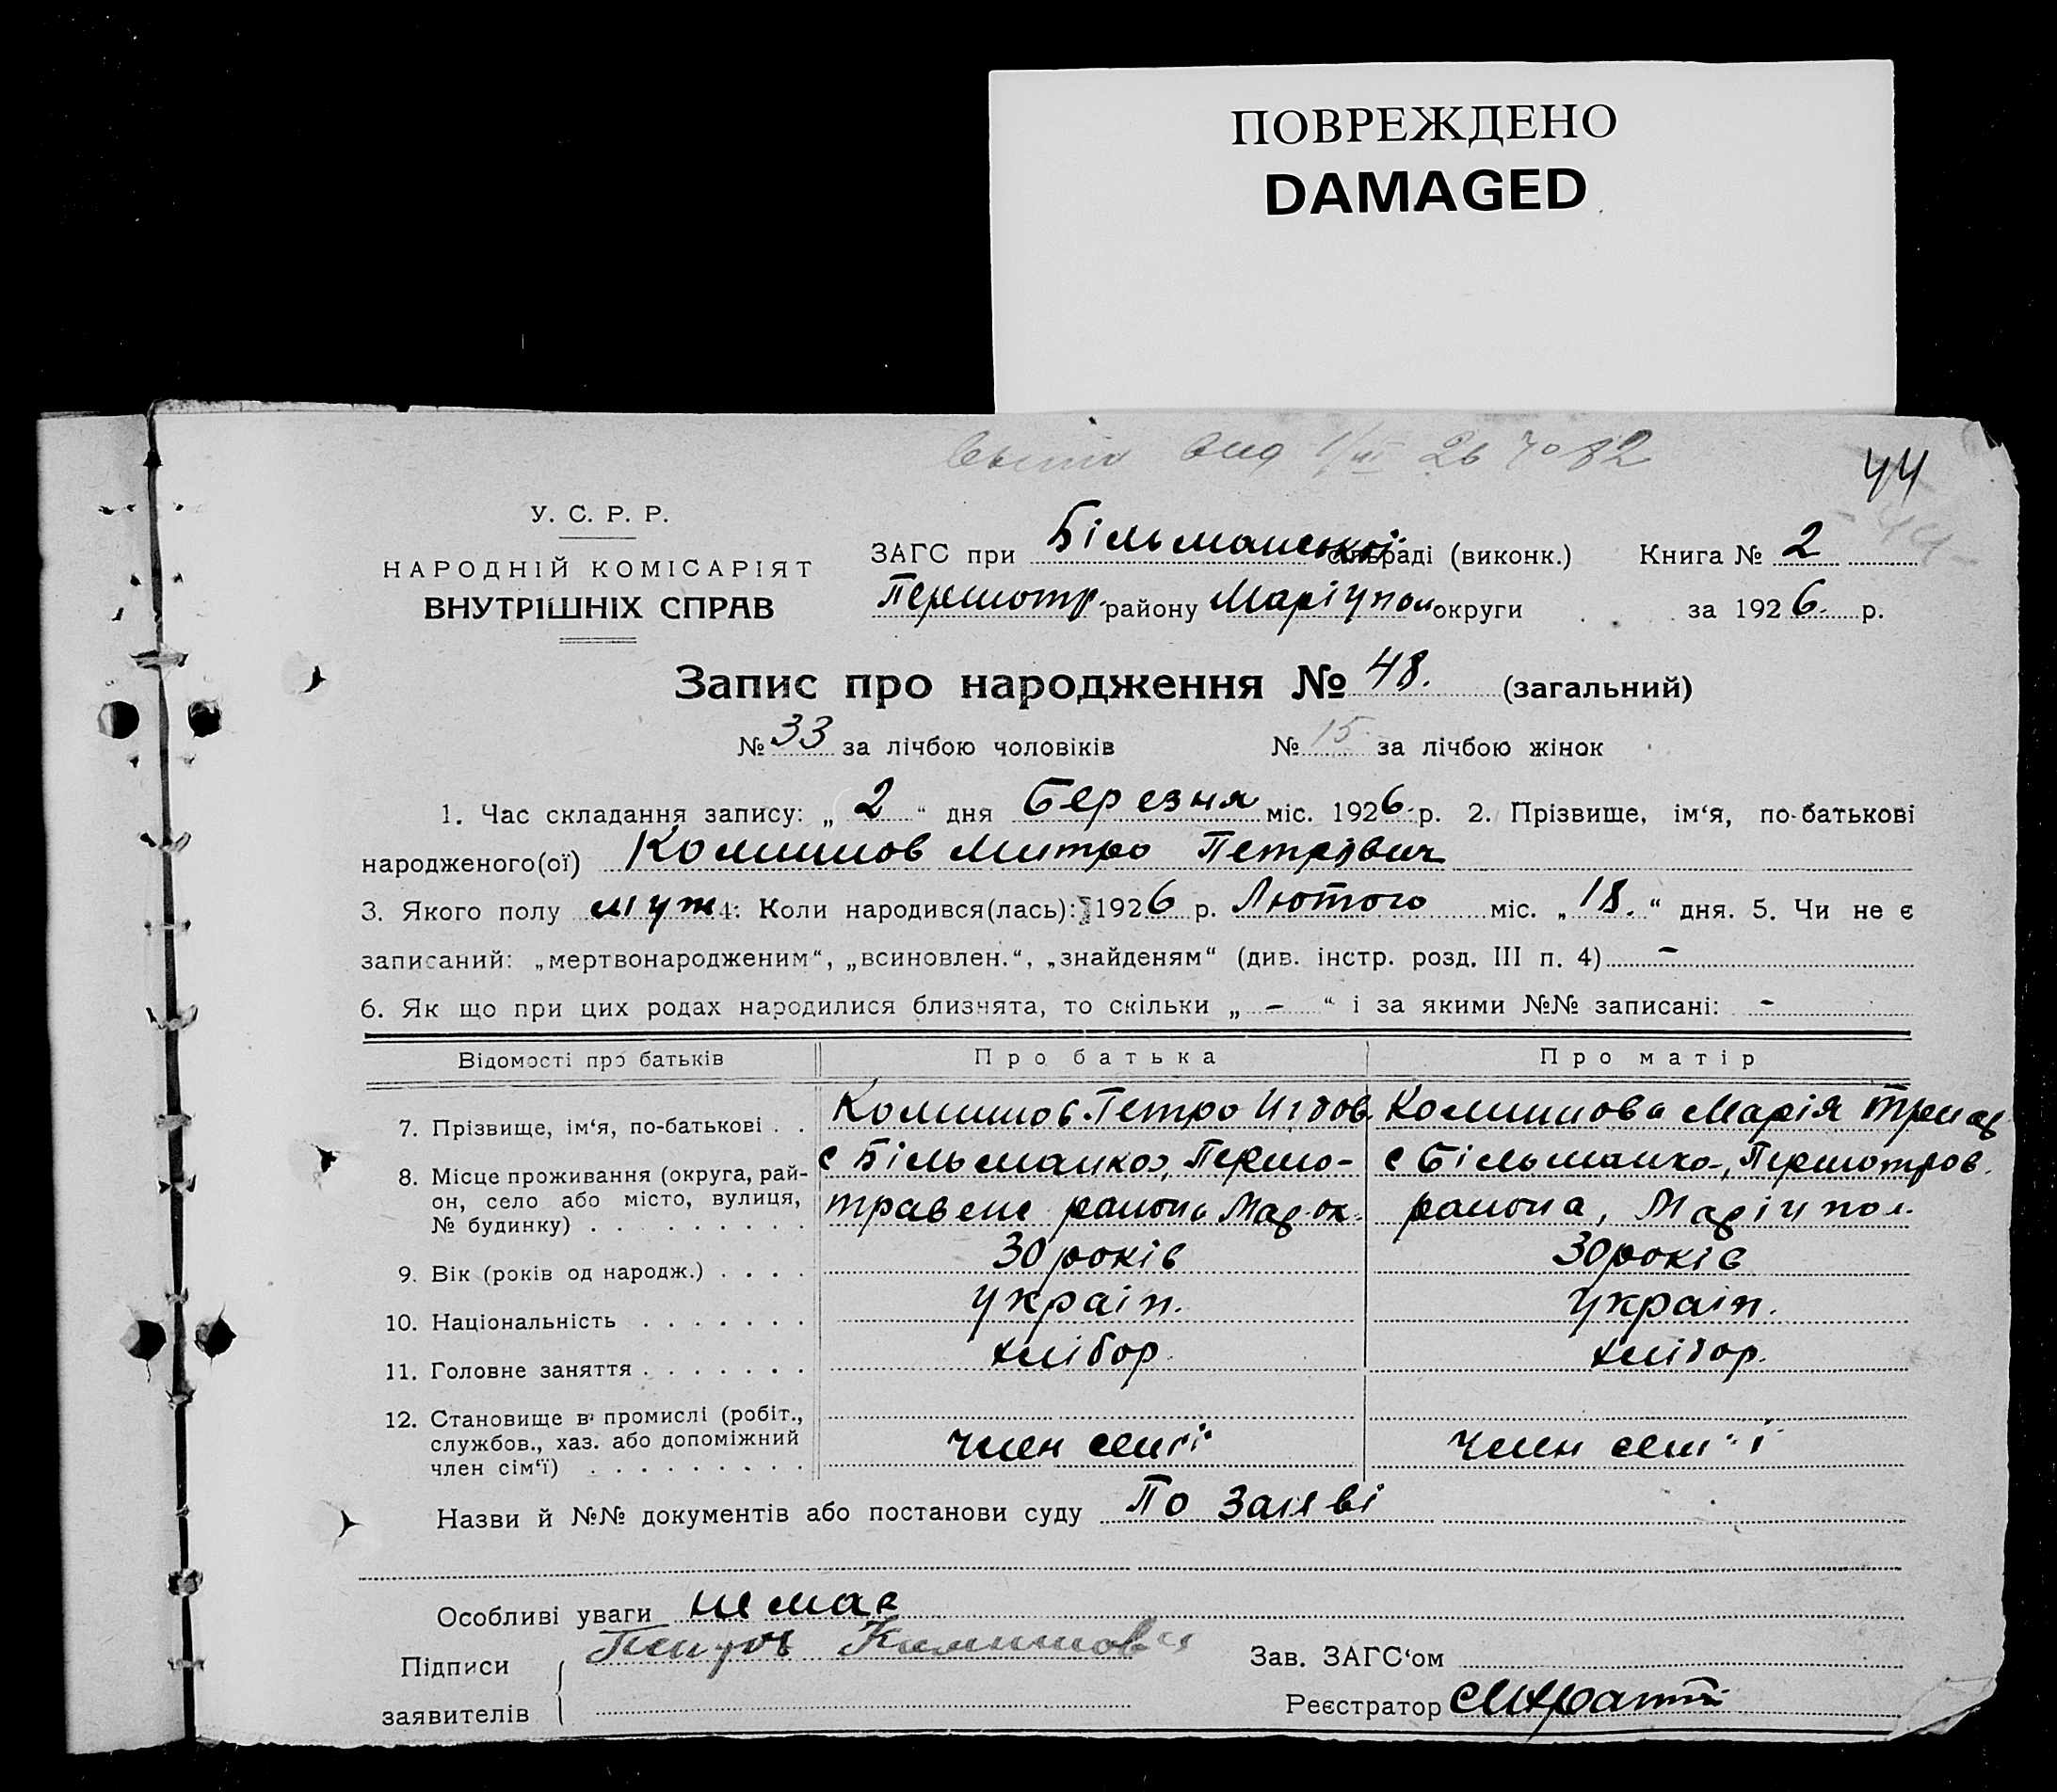 ПОВРЕЖДЕНО
DAMAGED
44
У. С. Р. Р.
НАРОДНІЙ КОМІСАРІЯТ
ВНУТРІШНІХ СПРАВ
ЗАГС при Більманської сільраді (виконк.) Книга № 2
Першотр. району Маріупол округи за 1926. р.
Запис про народження № 48. (загальний)
№ 33 за лічбою чоловіків № 15 за лічбою жінок
1. Час складання запису: „ 2 “ дня березня міс. 1926 р. 2. Прізвище, ім‘я, по-батькові
народженого(ої) Комишов Митро Петрович
3. Якого полу муж 4. Коли народився(лась): 1926 р. Лютого міс. „ 18. “ дня. 5. Чи не є
записаний: „мертвонародженим“, „всиновлен.“, „знайденям“ (див. інстр. розд. III п. 4) -
6. Як що при цих родах народилися близнята, то скільки „ - “ і за якими №№ записані: -
Відомості про батьків Про батька Про матір
7. Прізвище, ім‘я, по-батькові . . Комишов Петро Комишова Марія
8. Місце проживання (округа, рай-
он, село або місто, вулиця,
№ будинку) . . . . . . . . .
с Більманко, Першо- с Більманко, Першотров.
травене района Мар. ок. района, Маріупол.
9. Вік (років од народж.) . . . . 30 років 30 років
10. Національність . . . . . . . україн. україн.
11. Головне заняття . . . . . . . хлібор. хлібор.
12. Становище в промислі (робіт.,
службов., хаз. або допоміжний
член сім‘ї) . . . . . . . . .
член семї член сем'ї
Назви й №№ документів або постанови суду По заяві
Особливі уваги не має
Підписи
заявителів
Зав. ЗАГС‘ом
Реєстратор